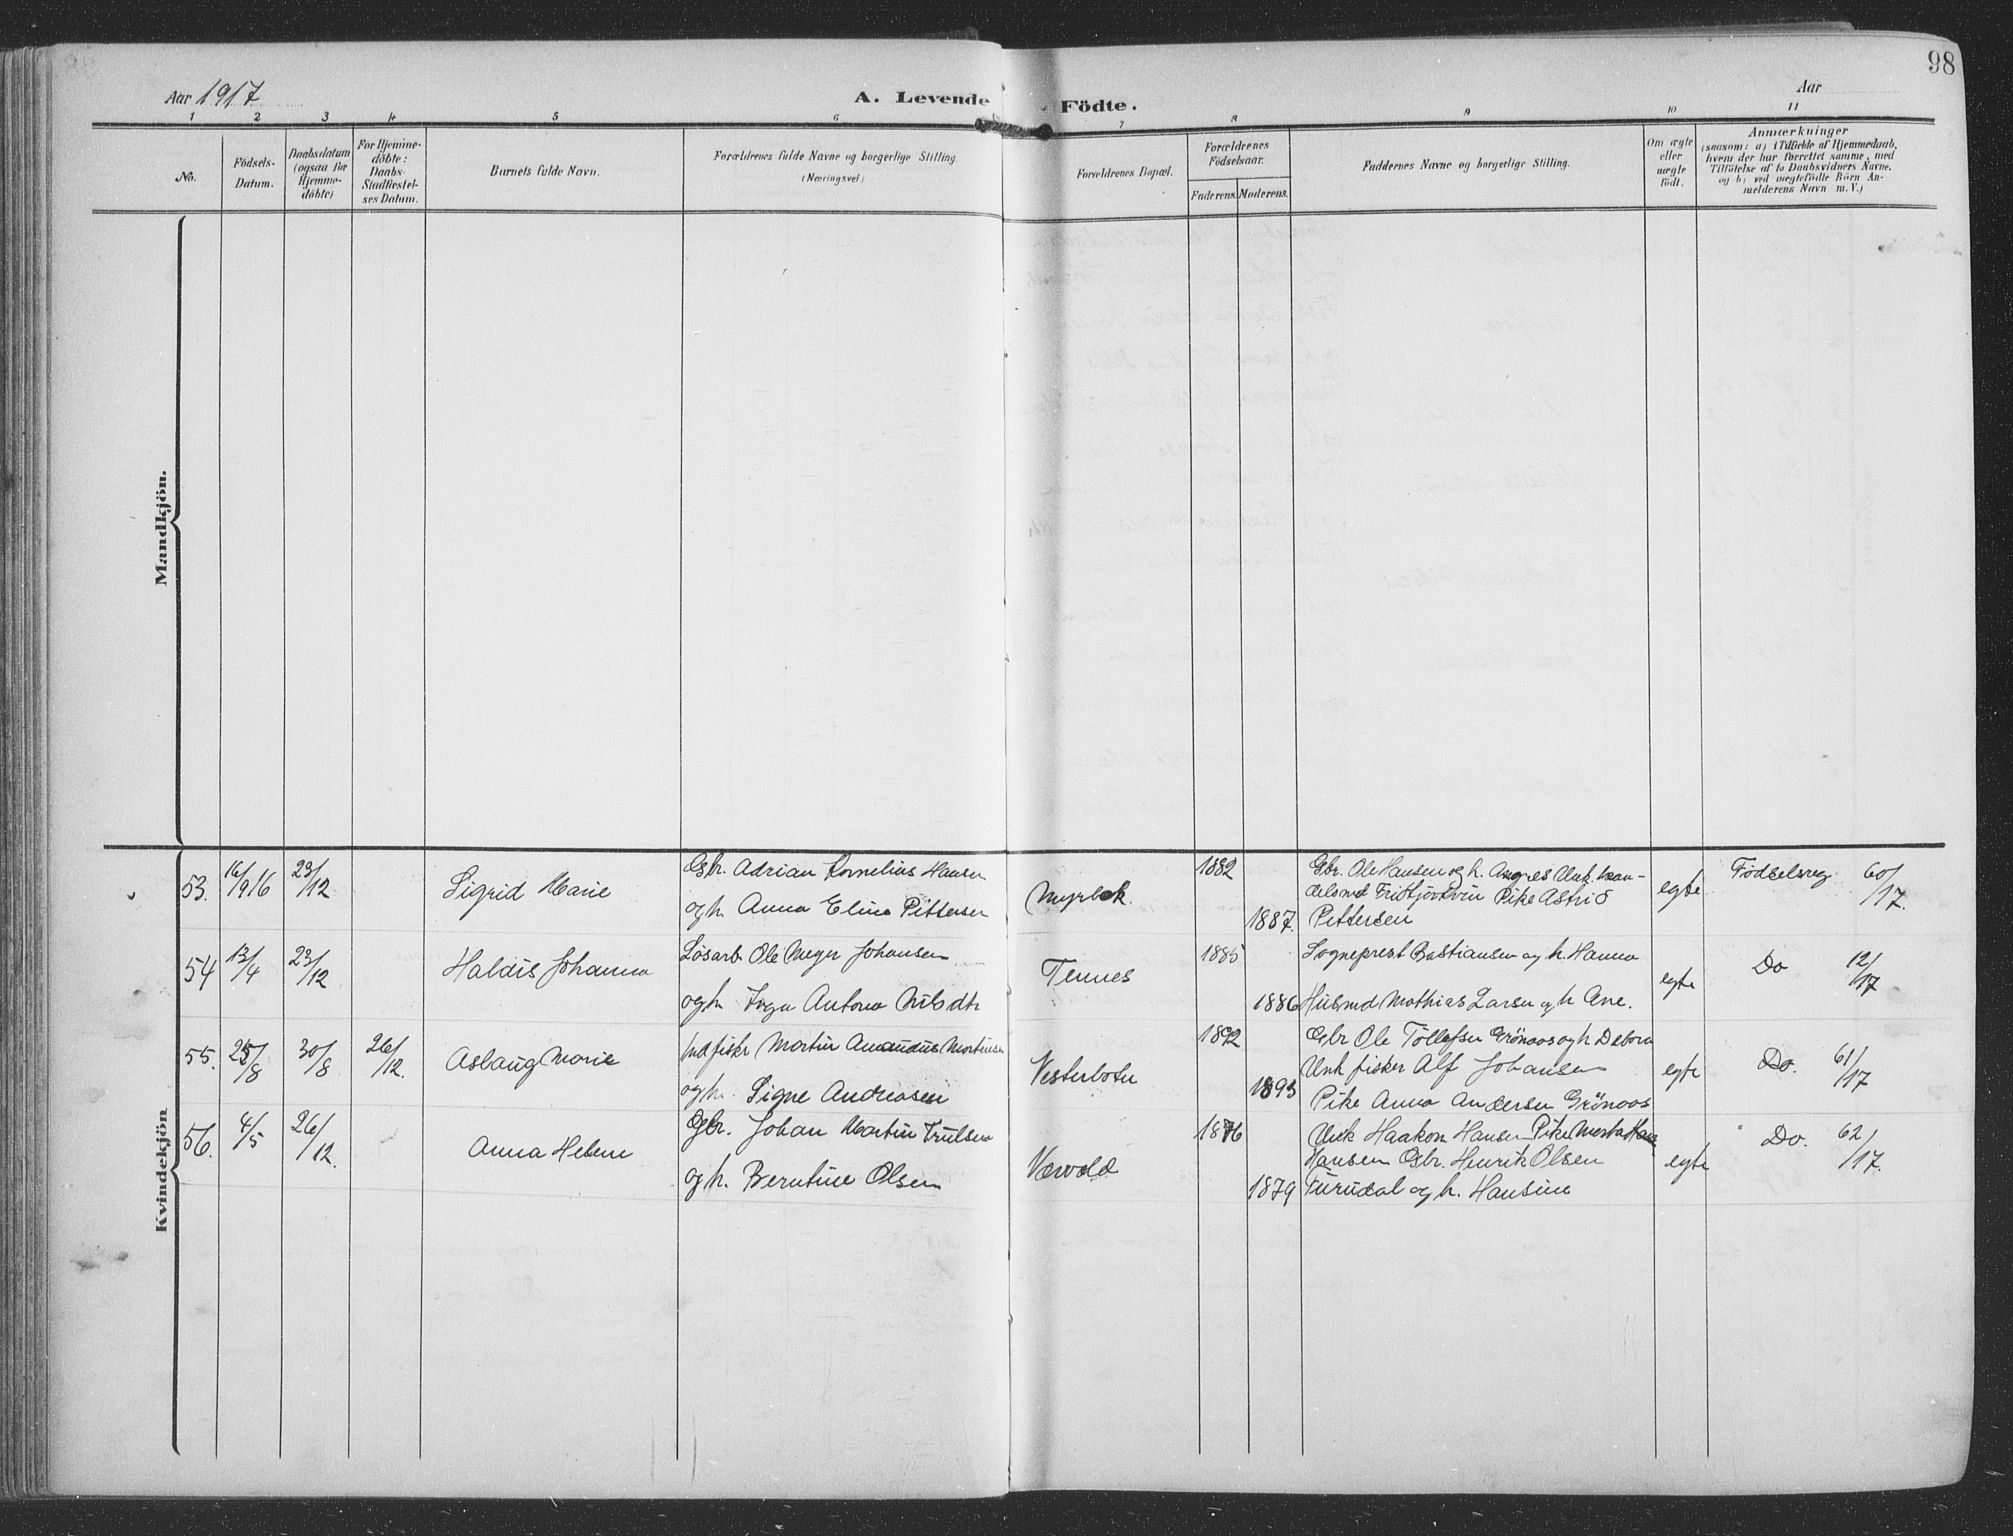 98
Aar 1917
A. Levende Födte.
Aar
1 2 3 4 5 6 7 8 9 10 11
No.
Födsels-
Datum.
Daabsdatum
(ogsaa for
Hjemme-
döbte)
For Hjemme-
döbte:
Daabs-
Stadfæstel-
ses Datum.
Barnets fulde Navn.
Forældrenes fulde Navne og borgerlige Stilling
(Næringsvei.)
Forældrenes Bopæl.
Forældrenes
Födselsaar.
Faderens. Moderens.
Faddernes Navne og borgerlige Stilling.
Om ægte
eller
uægte
födt.
Anmærkninger
(saasom: a) i Tilfælde af Hjemmedaab,
hvem der har forrettet samme, med
Tilföielse af to Daabsvidners Navne.
og b) ved uægtefödte Börn An-
melderens Navn m. V.)
Mandkjön.
Kvindekjön
53. 16/9 16 23/12
Sigrid Marie
Gbr. Adrian Kornelius Hansen
og h. Anna Eline Pettersen
1882
1887.
Gbr. Ole Hansen og h. Agnes Unk. han-
delsmd Fridtjov Pike Astrid
Pettersen
egte
Födselsreg. 60/17.
54 13/4 23/12
Haldis Johanna
Løsarb Ole Meyer Johansen
og h. Inga Antona
Tennes
1885
1886
Sogneprest Bastiansen og h. Hanna
Husmd Mathias Larsen og h Ane.
egte
Do 12/17
55. 25/8 30/8 26/12.
Aslaug Marie
Indfiskr Martin Amandus Mortensen
og h. Signe Andreasen
Vesterbotn
1892
1893
Gbr Ole Tollefsen Grönaas og h Debora
Unk fisker Alf Johansen
Pike Anna Andersen Grönaas
egte
Do. 61/17
56. 4/5 26/12.
Anna Helene
Gbr. Johan Martin Trulsen
og h. Berntine Olsen
1876
1879
Unk Haakon Hansen Pike
Hansen Gbr. Henrik Olsen
Furudal og h. Hansine
egte
Do. 62/17.